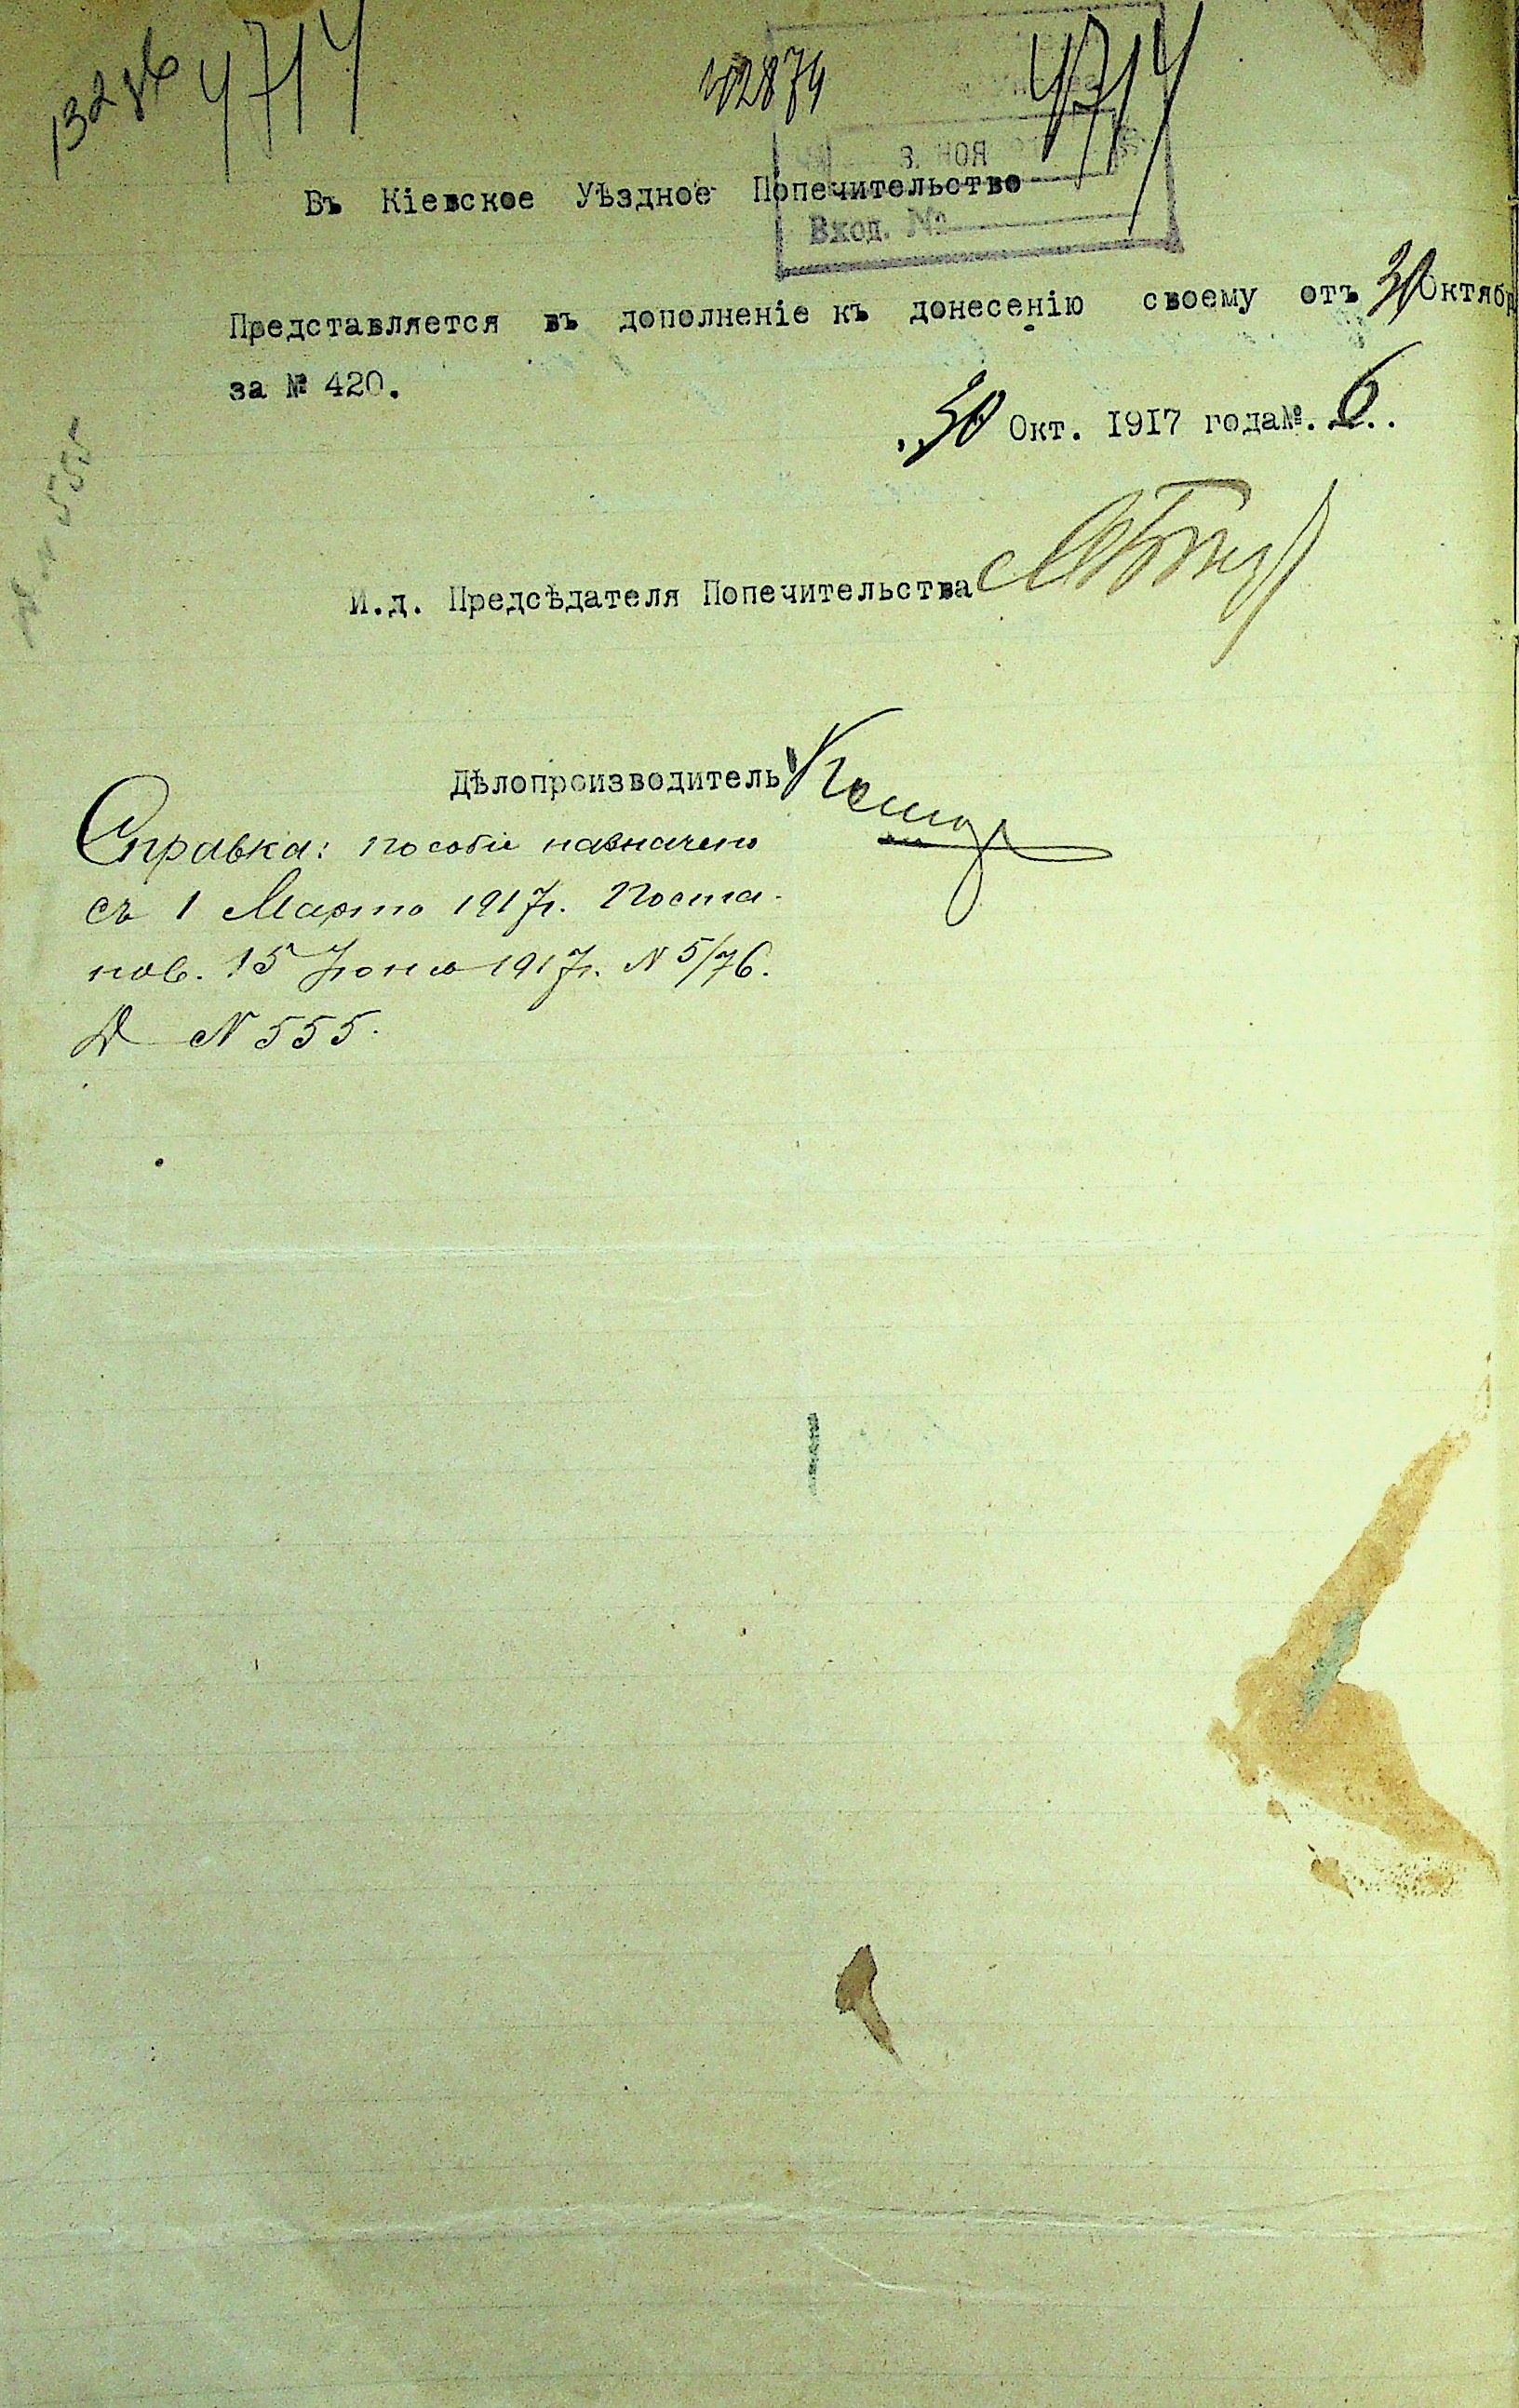 4714
4714
3. НОЯ
Въ Кіевское Уѣздное Попечительство
Вход. №
Представляется въ дополненіе къ донесенію своему отъ 30 Октяб
за № 420.
30 Окт. 1917 года №. 6.
И.д. Предсѣдателя Попечительства
Дѣлопроизводитель
Справка: пособіе назначено
съ 1 Марта 1917 г. Поста-
нов. 15 Іюня 1917 г. N 5/76.
Д N 555.
N 555